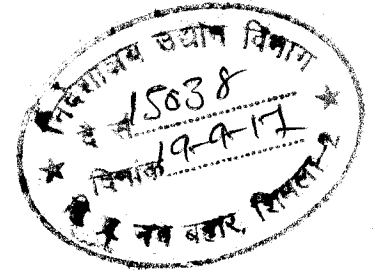 निदेशालय उद्यान विभाग
सं 15038
दिनांक 19-9-17
नव बहार, शिमला-2